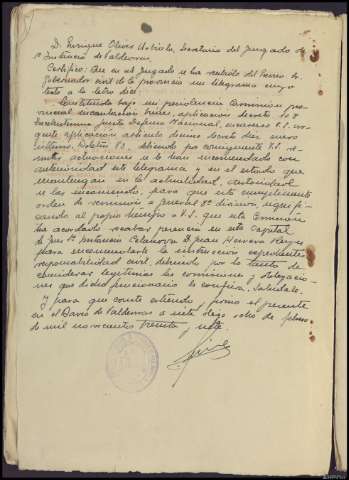 D. Enrique Oliver Astiela, Secretario del Juzgado de
1ª Instancia de Valdeorras.
Certifico: Que en el Juzgado se ha recibido del Excmo. Sr.
Gobernador civil de la provincia un telegrama cuyo
texto a la letra dice:
Constituida bajo mi presidencia Comisión pro-
vincial incautación bienes, aplicación decreto 108
Excelentísima Junta Defensa Nacional, intereso V.S.
aplicación artículo decreto diez enero
último, Boletín 83, debiendo por consiguiente V.S. re-
mitir actuaciones se le hayan encomendado con
anterioridad este telegrama y en el estado que
mantengan en la actualidad, autoridad
se las encomendó, para que esta cumplimente
orden de remisión a General 8ª división, signifi-
cando al propio tiempo a V.S. que esta Comisión
ha acordado recabar presencia en esta Capital
de Juez 1ª Instancia Celanova D. Juan Herrera Reyes
para encomendarle la instrucción expedientes
responsabilidad civil, debiendo por lo tanto de
considerar legítimas las comisiones y obligacio-
nes que dicho funcionario le confiera. Salúdale.
Y para que conste extiendo y firmo el presente
en el Barco de Valdeorras a siete digo ocho de febrero
de mil novecientos treinta y siete.